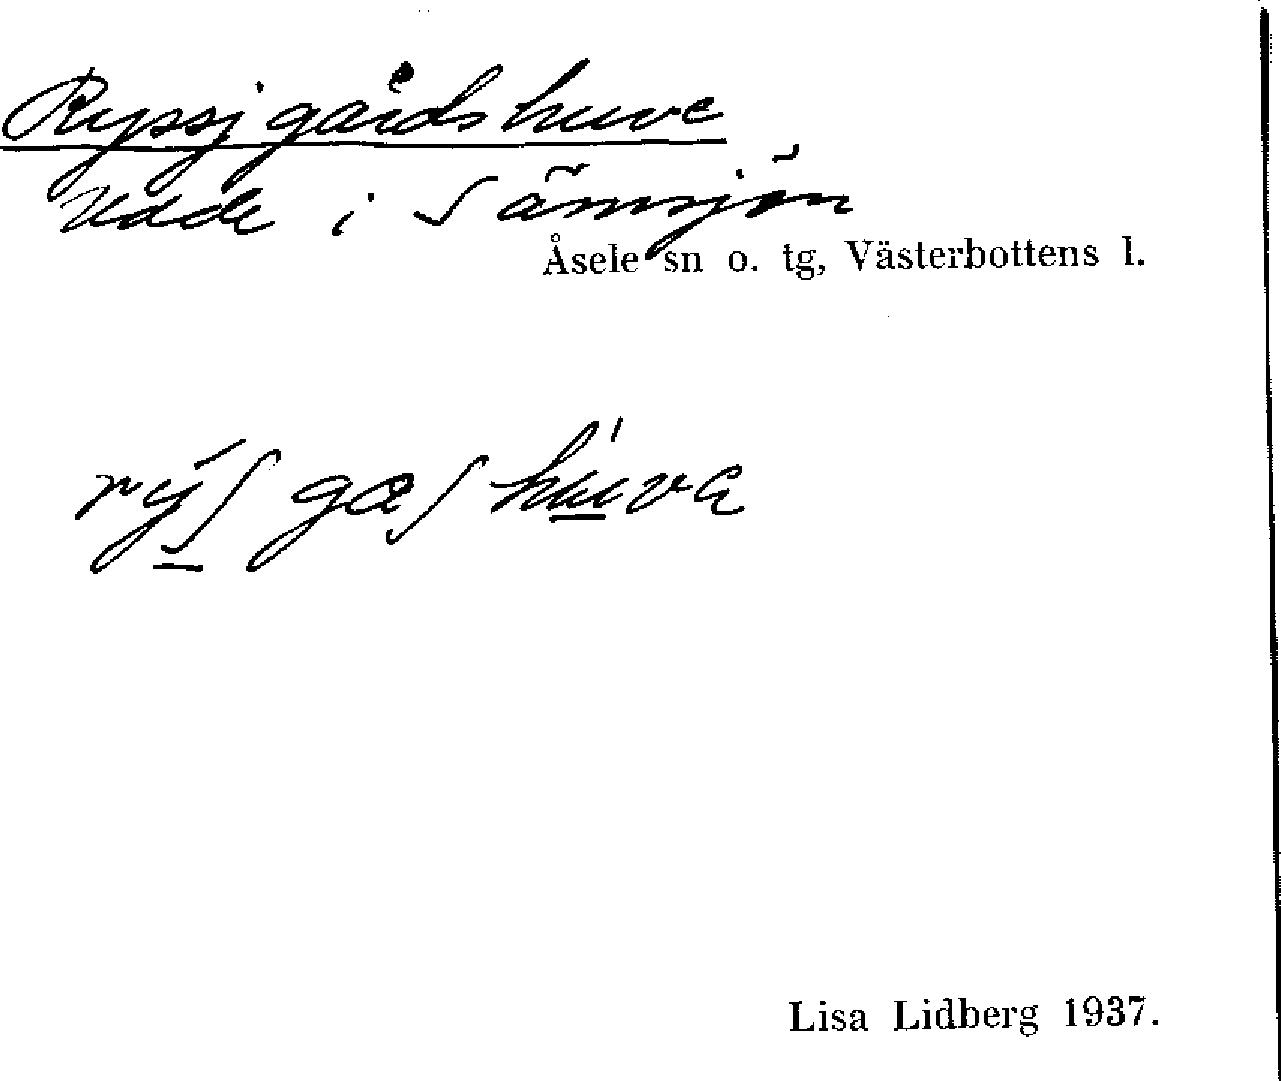 Ryssjgårdshuve
Udde i Sämsjön
Åsele sn o. tg, Västerbottens l.
rýʃgæʃhuva
Lisa Lidberg 1937.